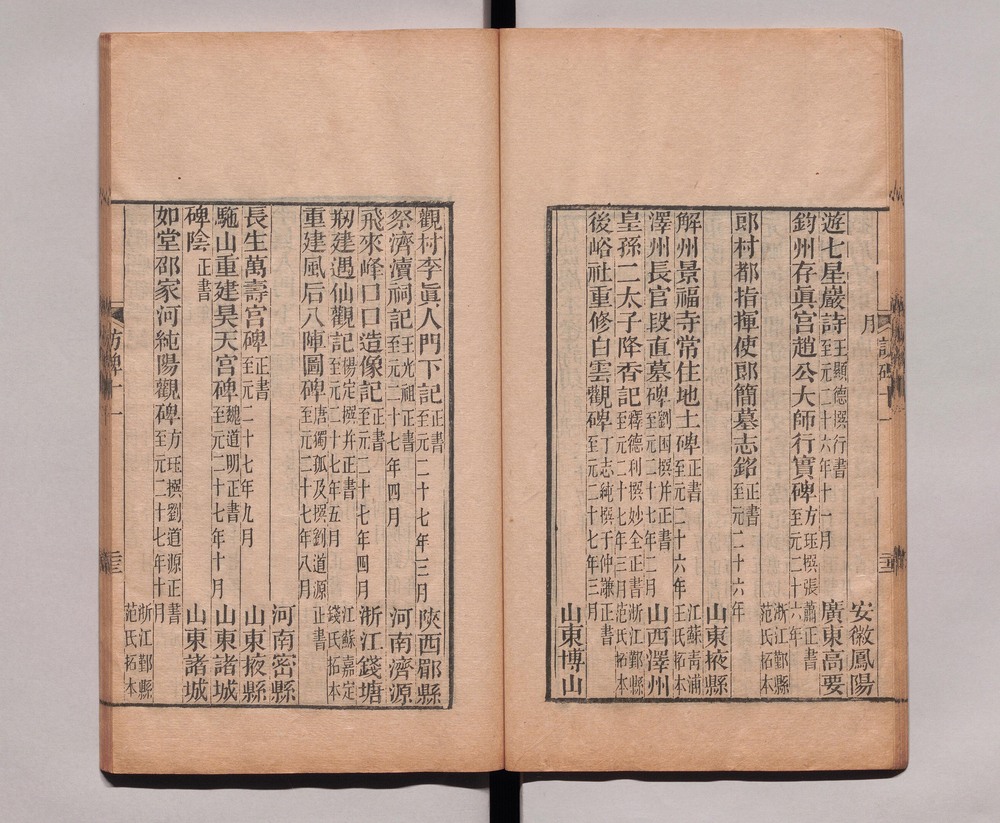 月 安徽鳳陽
遊七星巖詩 王顯德撰行書 至元二十六年十一月 廣東高要
鈞州存眞宮趙公大師行實碑 方珏撰張蕭正書 至元二十六年
浙江鄞縣范氏拓本
郎村都指揮使郎簡墓志銘 正書 至元二十六年
山東掖縣
解州景福寺常住地土碑 正書 至元二十六年 江蘇青浦王氏拓本
澤州長官段直墓碑 劉因撰并正書 至元二十七年二月 山西澤州
皇孫二太子降香記 釋德利撰妙全正書 至元二十七年三月 浙江鄞縣范氏拓本
後峪社重修白雲觀碑 丁志純撰于仲謙正書 至元二十七年三月
山東博山
訪碑十一
觀村李眞人門下記 正書 至元二十七年三月 陝西郿縣
祭濟瀆祠記 王光祖正書 至元二十七年四月 河南濟源
飛來峰口口造像記 正書 至元二十七年四月 浙江錢塘
剏建遇仙觀記 楊定撰并正書 至元二十七年五月 江蘇嘉定錢氏拓本
重建風后八陣圖碑 唐獨孤及撰劉道源正書 至元二十七年八月
河南密縣
長生萬壽宮碑 正書 至元二十七年九月 山東掖縣
駞山重建昊天宮碑 魏道明正書 至元二十七年十月 山東諸城
碑陰 正書 山東諸城
如堂邵家河純陽觀碑 方珏撰劉道源正書 至元二十七年十月
浙江鄞縣范氏拓本
訪碑十一